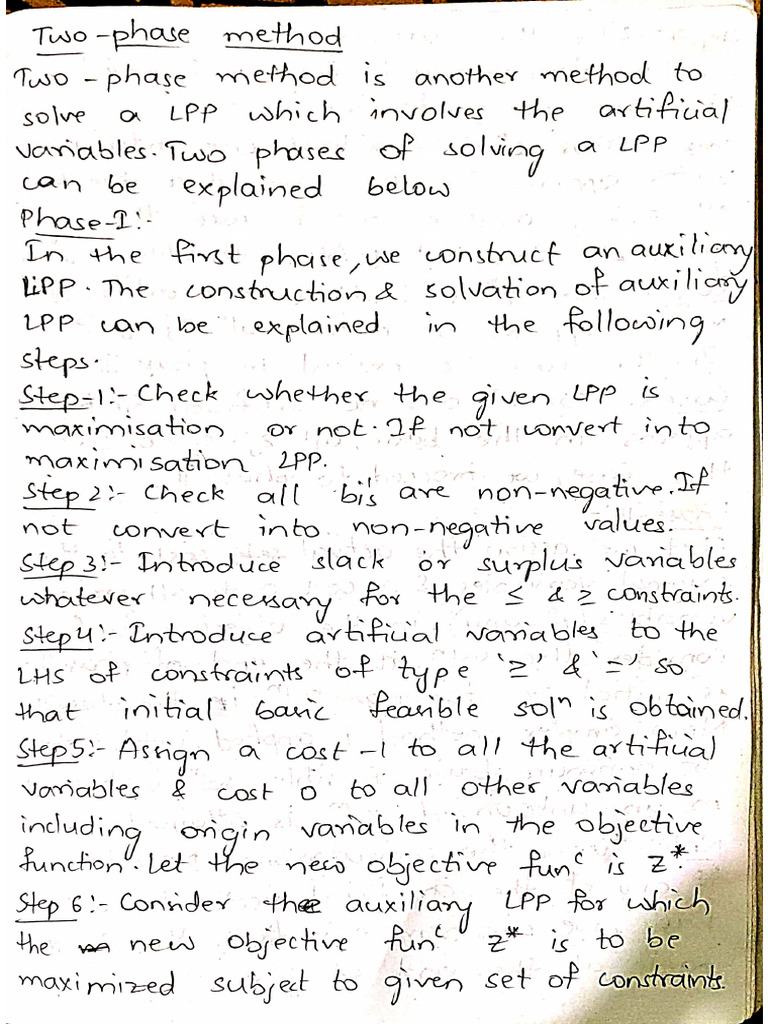 Two-phase method
Two-phase method is another method to
solve a LPP which involves the artificial
variables. Two phases of solving a LPP
can be explained below
Phase-I:-
In the first phase, we construct an auxiliary
LPP. The construction & solvation of auxiliary
LPP can be explained in the following
steps.
Step-1:- Check whether the given LPP is
maximisation or not. If not convert into
maximisation LPP.
Step 2:- Check all bi's are non-negative. If
not convert into non-negative values.
Step 3:- Introduce slack or surplus variables
whatever necessary for the ≤ & ≥ constraints.
Step 4:- Introduce artificial variables to the
LHS of constraints of type '≥' & '=' so
that initial basic feasible solⁿ is obtained.
Step 5:- Assign a cost -1 to all the artificial
variables & cost 0 to all other variables
including origin variables in the objective
function. Let the new objective funᶜ is Z*.
Step 6:- Consider the auxiliary LPP for which
the new objective funᶜ Z* is to be
maximized subject to given set of constraints.